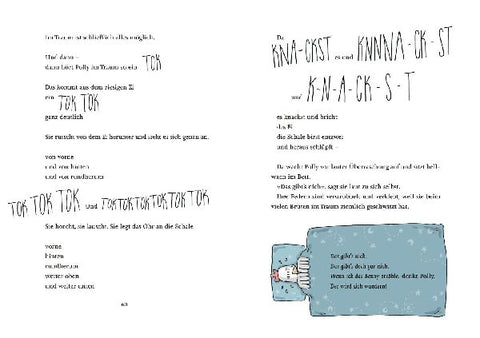 Im Traum ist schließlich alles möglich.
Und dann –
dann hört Polly im Traum so ein TOK
Das kommt aus dem riesigen Ei
ein TOK TOK
ganz deutlich
Sie rutscht von dem Ei herunter und sieht es sich genau an.
von vorne
und von hinten
und von rundherum
TOK TOK TOK und TOKTOKTOKTOKTOKTOK
Sie horcht, sie lauscht. Sie legt das Ohr an die Schale
vorne
hinten
rundherum
weiter oben
und weiter unten
Da
KNACKST es und KNNNA-CK-ST
und K-N-A-CK-S-T
es knackt und bricht
das Ei
die Schale birst entzwei
und heraus schlüpft –
Da wacht Polly vor lauter Überraschung auf und sitzt hell-
wach im Bett.
»Das gibt's nicht«, sagt sie laut zu sich selbst.
Ihre Federn sind verstrubbelt und verklebt, weil sie beim
vielen Brüten im Traum ziemlich geschwitzt hat.
Das gibt's nicht.
Das gibt's doch gar nicht.
Wenn ich das Benny erzähle, denkt Polly.
Der wird sich wundern!